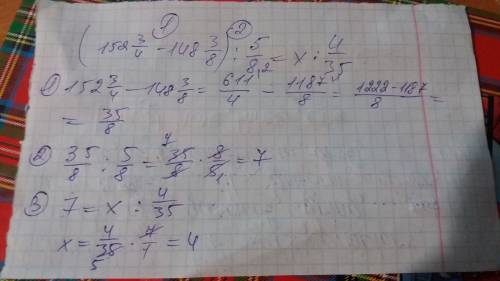 ① ②
(152 3/4 - 148 3/8) : 5/8 = x : 4/35
① 152 3/4 - 148 3/8 = 611/4 ² - 1187/8 = 1222-1187/8 =
= 35/8
② 35/8 : 5/8 = 35/8 · 8/5 = 7
③ 7 = x : 4/35
x = 4/35 · 7/1 = 4
5